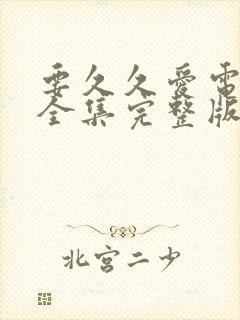 要久久爱电
全集完整版
北宫二少